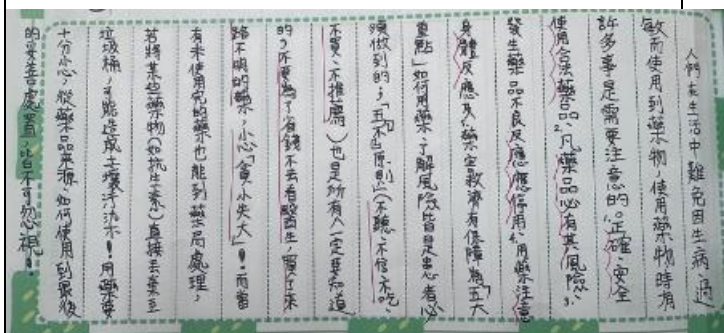 人們在生活中難免因生病、過
敏而使用到藥物，使用藥物時有
許多事是需要注意的。「正確、安全
使用合法藥品、2.凡藥品必有其風險、3.
發生藥品不良反應應停用、4.用藥注意
身體反應及5.藥害救濟有保障為「五大
重點」如何用藥、了解風險皆是患者必
須做到的；「五不」原則」(不聽、不信、不吃、
不買、不推薦)也是所有人一定要知道
的，不要為了省錢不去看醫生，買了來
路不明的藥，小心「貪小失大」！而當
有未使用完的藥也能到藥局處理，
若將某些藥物(如抗生素)直接丟棄至
垃圾桶，可能造成土壤汙染！用藥要
十分小心，從藥品來源、如何使用到最後
的妥善處置，皆不可忽視！